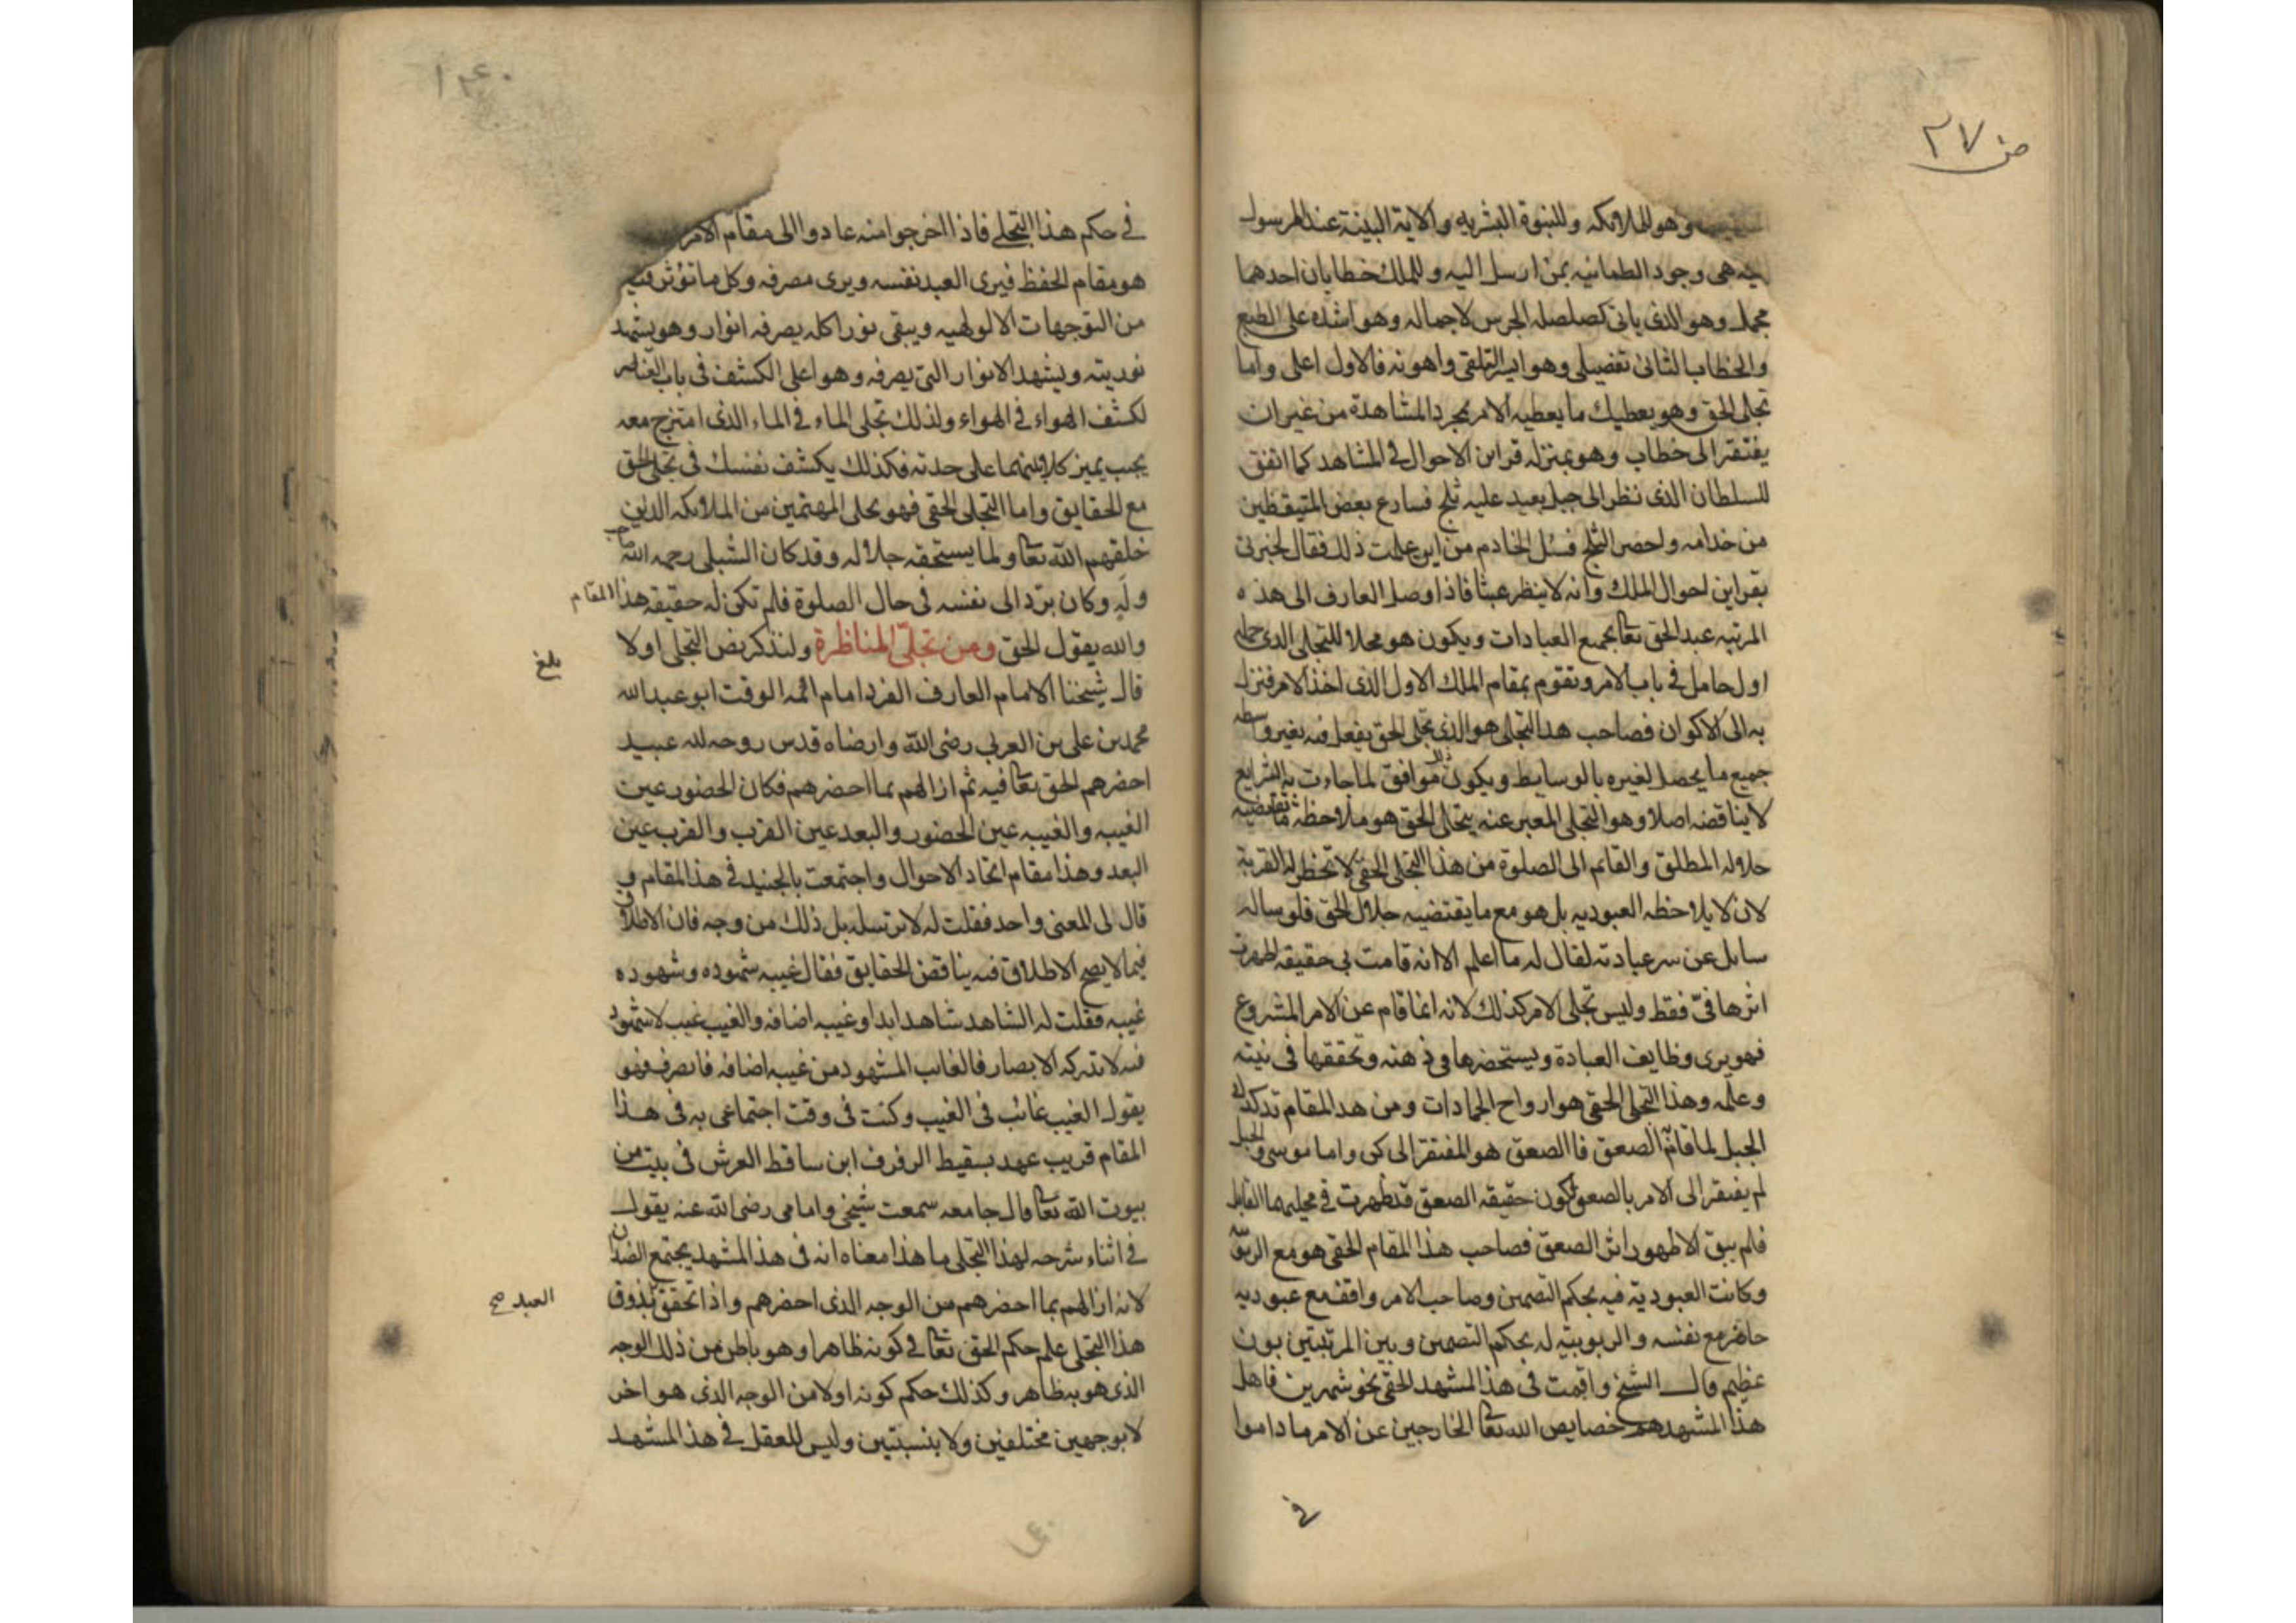 ص ٢٧
وهو للملائكه وللنبوة البشريه والاية البينة عند المرسول
اليه هى وجود الطمانيه بمن ارسل اليه وللملك خطابان احدهما
مجمل وهو الذى ياتى كصلصله الجرس لاجماله وهو اشده على الطبع
والخطاب الثانى تفصيلى وهو ايسر التلقى واهونه فالاول اعلى واما
تجلى الحق وهو يعطيك ما يعطيه الامر بمجرد المشاهدة من غير ان
يفتقر الى خطاب وهو بمنزله قراين الاحوال فى المشاهد كما اتفق
للسلطان الذى نظر الى جبل بعيد عليه ثلج فسارع بعض المتيقظين
من خدامه واحضر الثلج فسئل الخادم من اين علمت ذلك فقال لخبرتى
بقراين احوال الملك وانه لا ينظر عبثا فاذا وصل العارف الى هذه
المرتبه عبد الحق تعا بجميع العبادات ويكون هو محلا للتجلى الذى حمله
اول حامل فى باب الامر وتقوم بمقام الملك الاول الذى اخذ الامر فنزل
به الى الاكوان فصاحب هذا التجلى هو الذى تجلى الحق بفعل فيه بغير واسطه
جميع ما يحصل لغيره بالوسايط ويكون ذلك موافق لما جاءت به الشرايع
لا يناقضه اصلا وهو التجلى المعبر عنه بتجلى الحق هو ملاحظة ما تقتضيه
جلاله المطلق والقائم الى الصلوة من هذا التجلى الحقى لا تخطر له القربة
لان لا يلاحظه العبوديه بل هو مع ما يقتضيه جلال الحق فلو ساله
سايل عن سر عبادته لقال له ما اعلم الا انه قامت بى حقيقه ظهرت
اثرها فىّ فقط وليس تجلى الامر كذلك لانه انما قام عن الامر المشروع
فهو يرى وظايف العبادة ويستحضرها فى ذهنه وتحققها فى نيته
وعلمه وهذا التجلى الحقى هو ارواح الجمادات ومن هذ المقام تدكدك
الجبل لما قام به الصعق فاالصعق هو المفتقر الى كن واما موسى والجبل
لم يفتقر الى الامر بالصعق لكون حقيقه الصعق قد ظهرت فى محليهما القابل
فلم يبق الا ظهور اثر الصعق فصاحب هذا المقام الحقى هو مع الربوبية
وكانت العبودية فيه بحكم التضمن وصاحب الامر واقف مع عبوديه
حاضر مع نفسه والربوبيته له بحكم التضمن وبين المرتبتين بون
عظيم قال الشيخ واقمت فى هذا المشهد الحقى نحو شهرين فاهل
هذا المشهد هم خصايص الله تعا الخارجين عن الامر ما داموا
فى
١٤٠
فى حكم هذا التجلى فاذا اخرجوا منه عادوا الى مقام الامر
هو مقام الحفظ فيرى العبد نفسه ويرى مصرفه وكل ما تؤثر فيه
من التوجهات الالوهيه ويبقى نورا كله يصرفه انوار وهو يشهد
نوريته ويشهد الانوار التى يصرفه وهو اعلى الكشف فى باب العناصر
لكشف الهواء فى الهواء ولذلك تجلى الماء فى الماء الذى امتزج معه
يجب يميز كلا منهما على حدته فكذلك يكشف نفسك فى تجلى الحق
مع الحقايق واما التجلى الحقى فهو تجلى المهيمين من الملائكه الذين
خلقهم الله تعا ولما يستحقه جلاله وقد كان الشبلى رحمه الله صاحب
وله وكان يرد الى نفسه فى حال الصلوة فلم تكن له حقيقه هذا المقام
والله يقول الحق ومن تجلّى المناظرة ولنذكر نص التجلى اولا
بلغ
قال شيخنا الامام العارف الفرد امام ائمه الوقت ابو عبد الله
محمد بن على بن العربى رضى الله وارضاه قدس روحه لله عبيد
احضرهم الحق تعا فيه ثم ازالهم بما احضرهم فكان الحضور عين
الغيبه والغيبه عين الحضور والبعد عين القرب والقرب عين
البعد وهذا مقام اتحاد الاحوال واجتمعت بالجنيد فى هذا المقام و
قال لى المعنى واحد فقلت له لا ترسله بل ذلك من وجه فان الاطلاق
فيما لا يصح الاطلاق فيه يناقض الحقايق فقال غيبه شهوده وشهوده
غيبه فقلت له الشاهد شاهد ابدا وغيبه اضافه والغيب غيب لا شهود
فيه لا تدركه الابصار فالغائب المشهود من غيبه اضافه فانصرف وهو
يقول الغيب غائب فى الغيب وكنت فى وقت اجتماعى به فى هذا
المقام قريب عهد بسقيط الرفرف ابن ساقط العرش فى بيت من
بيوت الله تعا قال جامعه سمعت شيخى وامامى رضى الله عنه يقول
فى اثناء شرحه لهذا التجلى ما هذا معناه انه فى هذا المشهد يجتمع الضدان
لانه ازالهم بما احضرهم من الوجه الذى احضرهم واذا تحقق بذوق
العبد صح
هذا التجلى علم حكم الحق تعا فى كونه ظاهرا وهو باطن من ذلك الوجه
الذى هو به ظاهر وكذلك حكم كونه اولا من الوجه الذى هو اخر
لا بوجهين مختلفين ولا بنسبتين وليس للعقل فى هذا المشهد